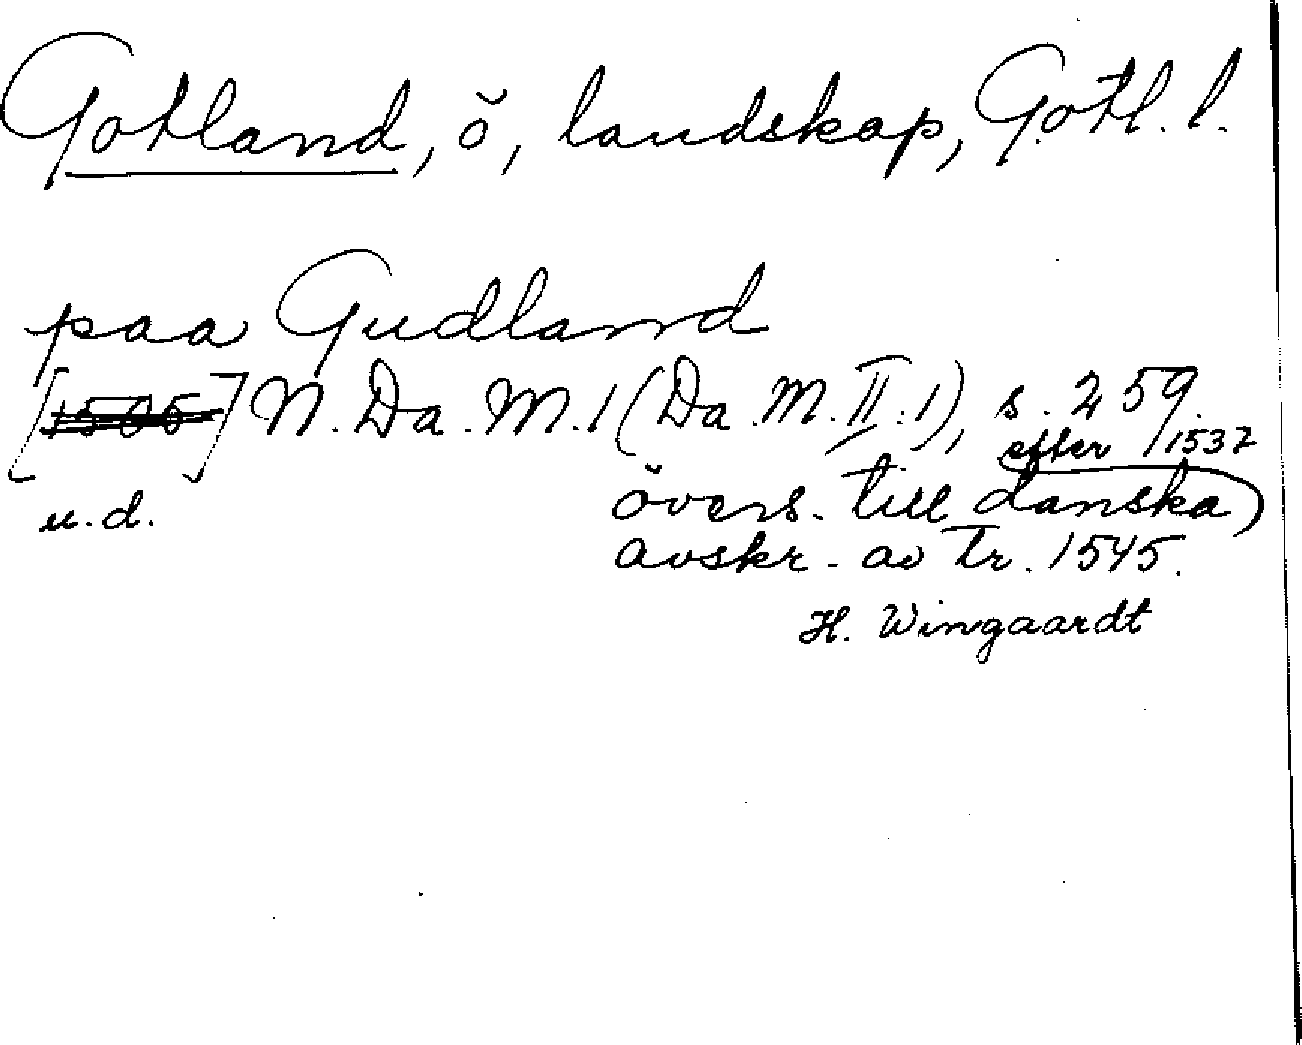 Gotland, ö, landskap, Gotl. l.
paa Gudland
[1505] N. Da. M. 1 (Da. M. II:1), s. 259.
efter 1537
u.d. övers. till danska)
avskr. av Tr. 1545.
H. Wingaardt